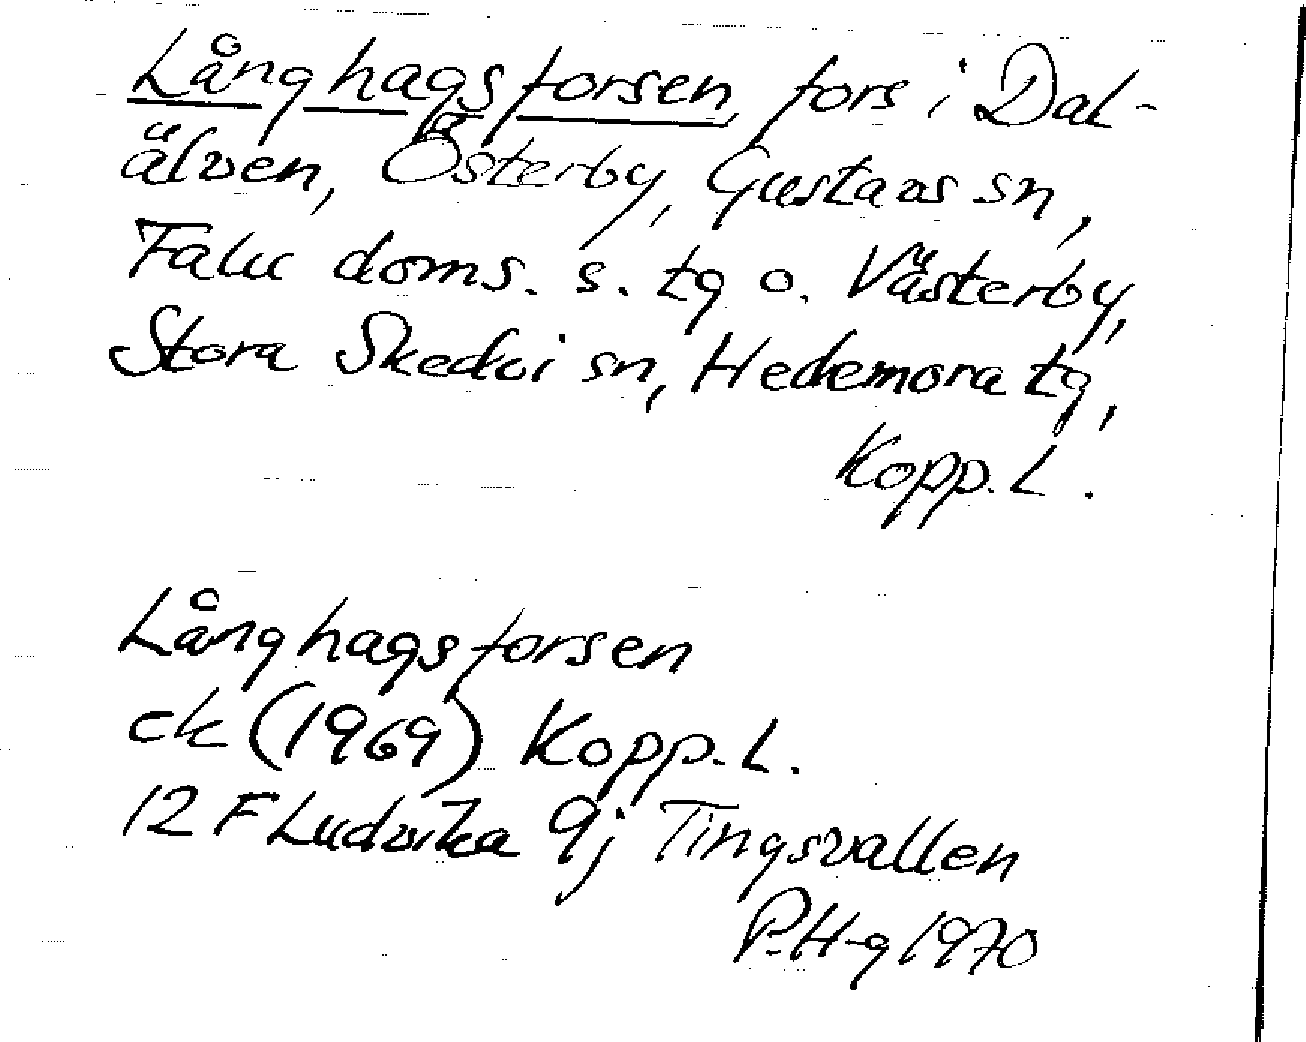 Långhagsforsen, fors i Dal-
älven, Österby, Gustavs sn,
Falu doms. s. tg o. Västerby,
Stora Skedvi sn, Hedemora tg,
Kopp. l.
Långhagsforsen
ek (1969) Kopp. l.
12 F Ludvika 9j Tingsvallen
P. H-g 1970